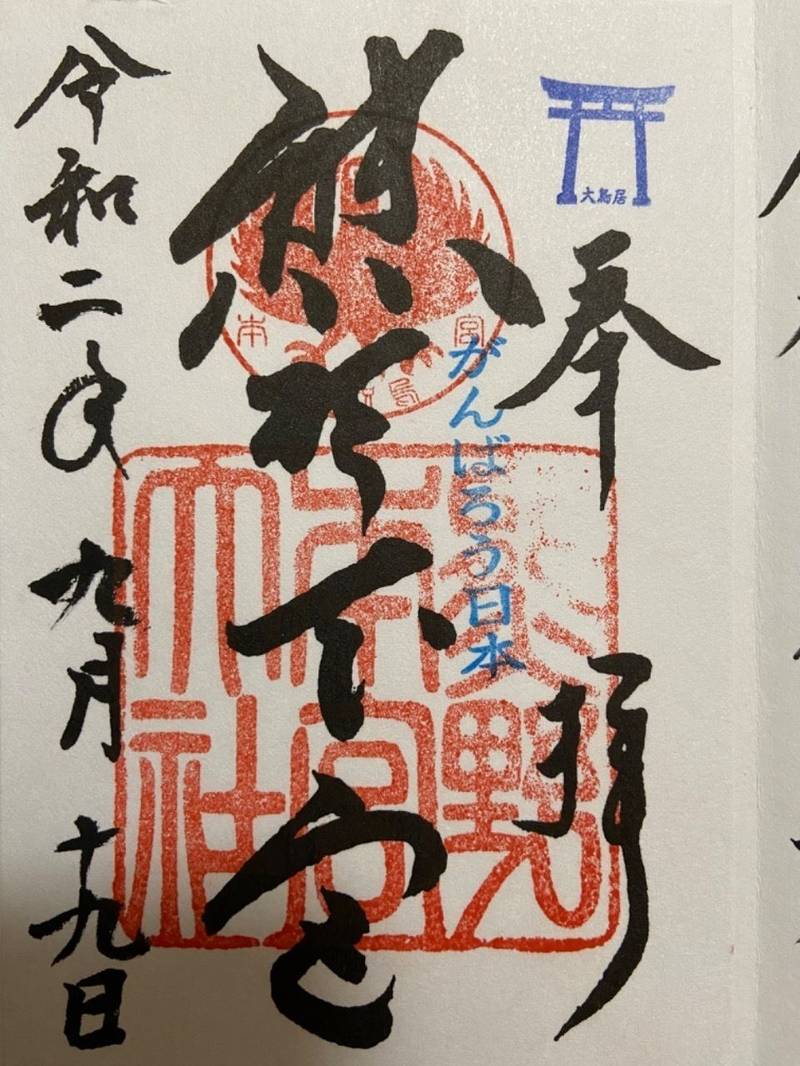 大鳥居
奉拝
がんばろう日本
熊野本宮
熊野
本宮
大社
令和二年九月十九日